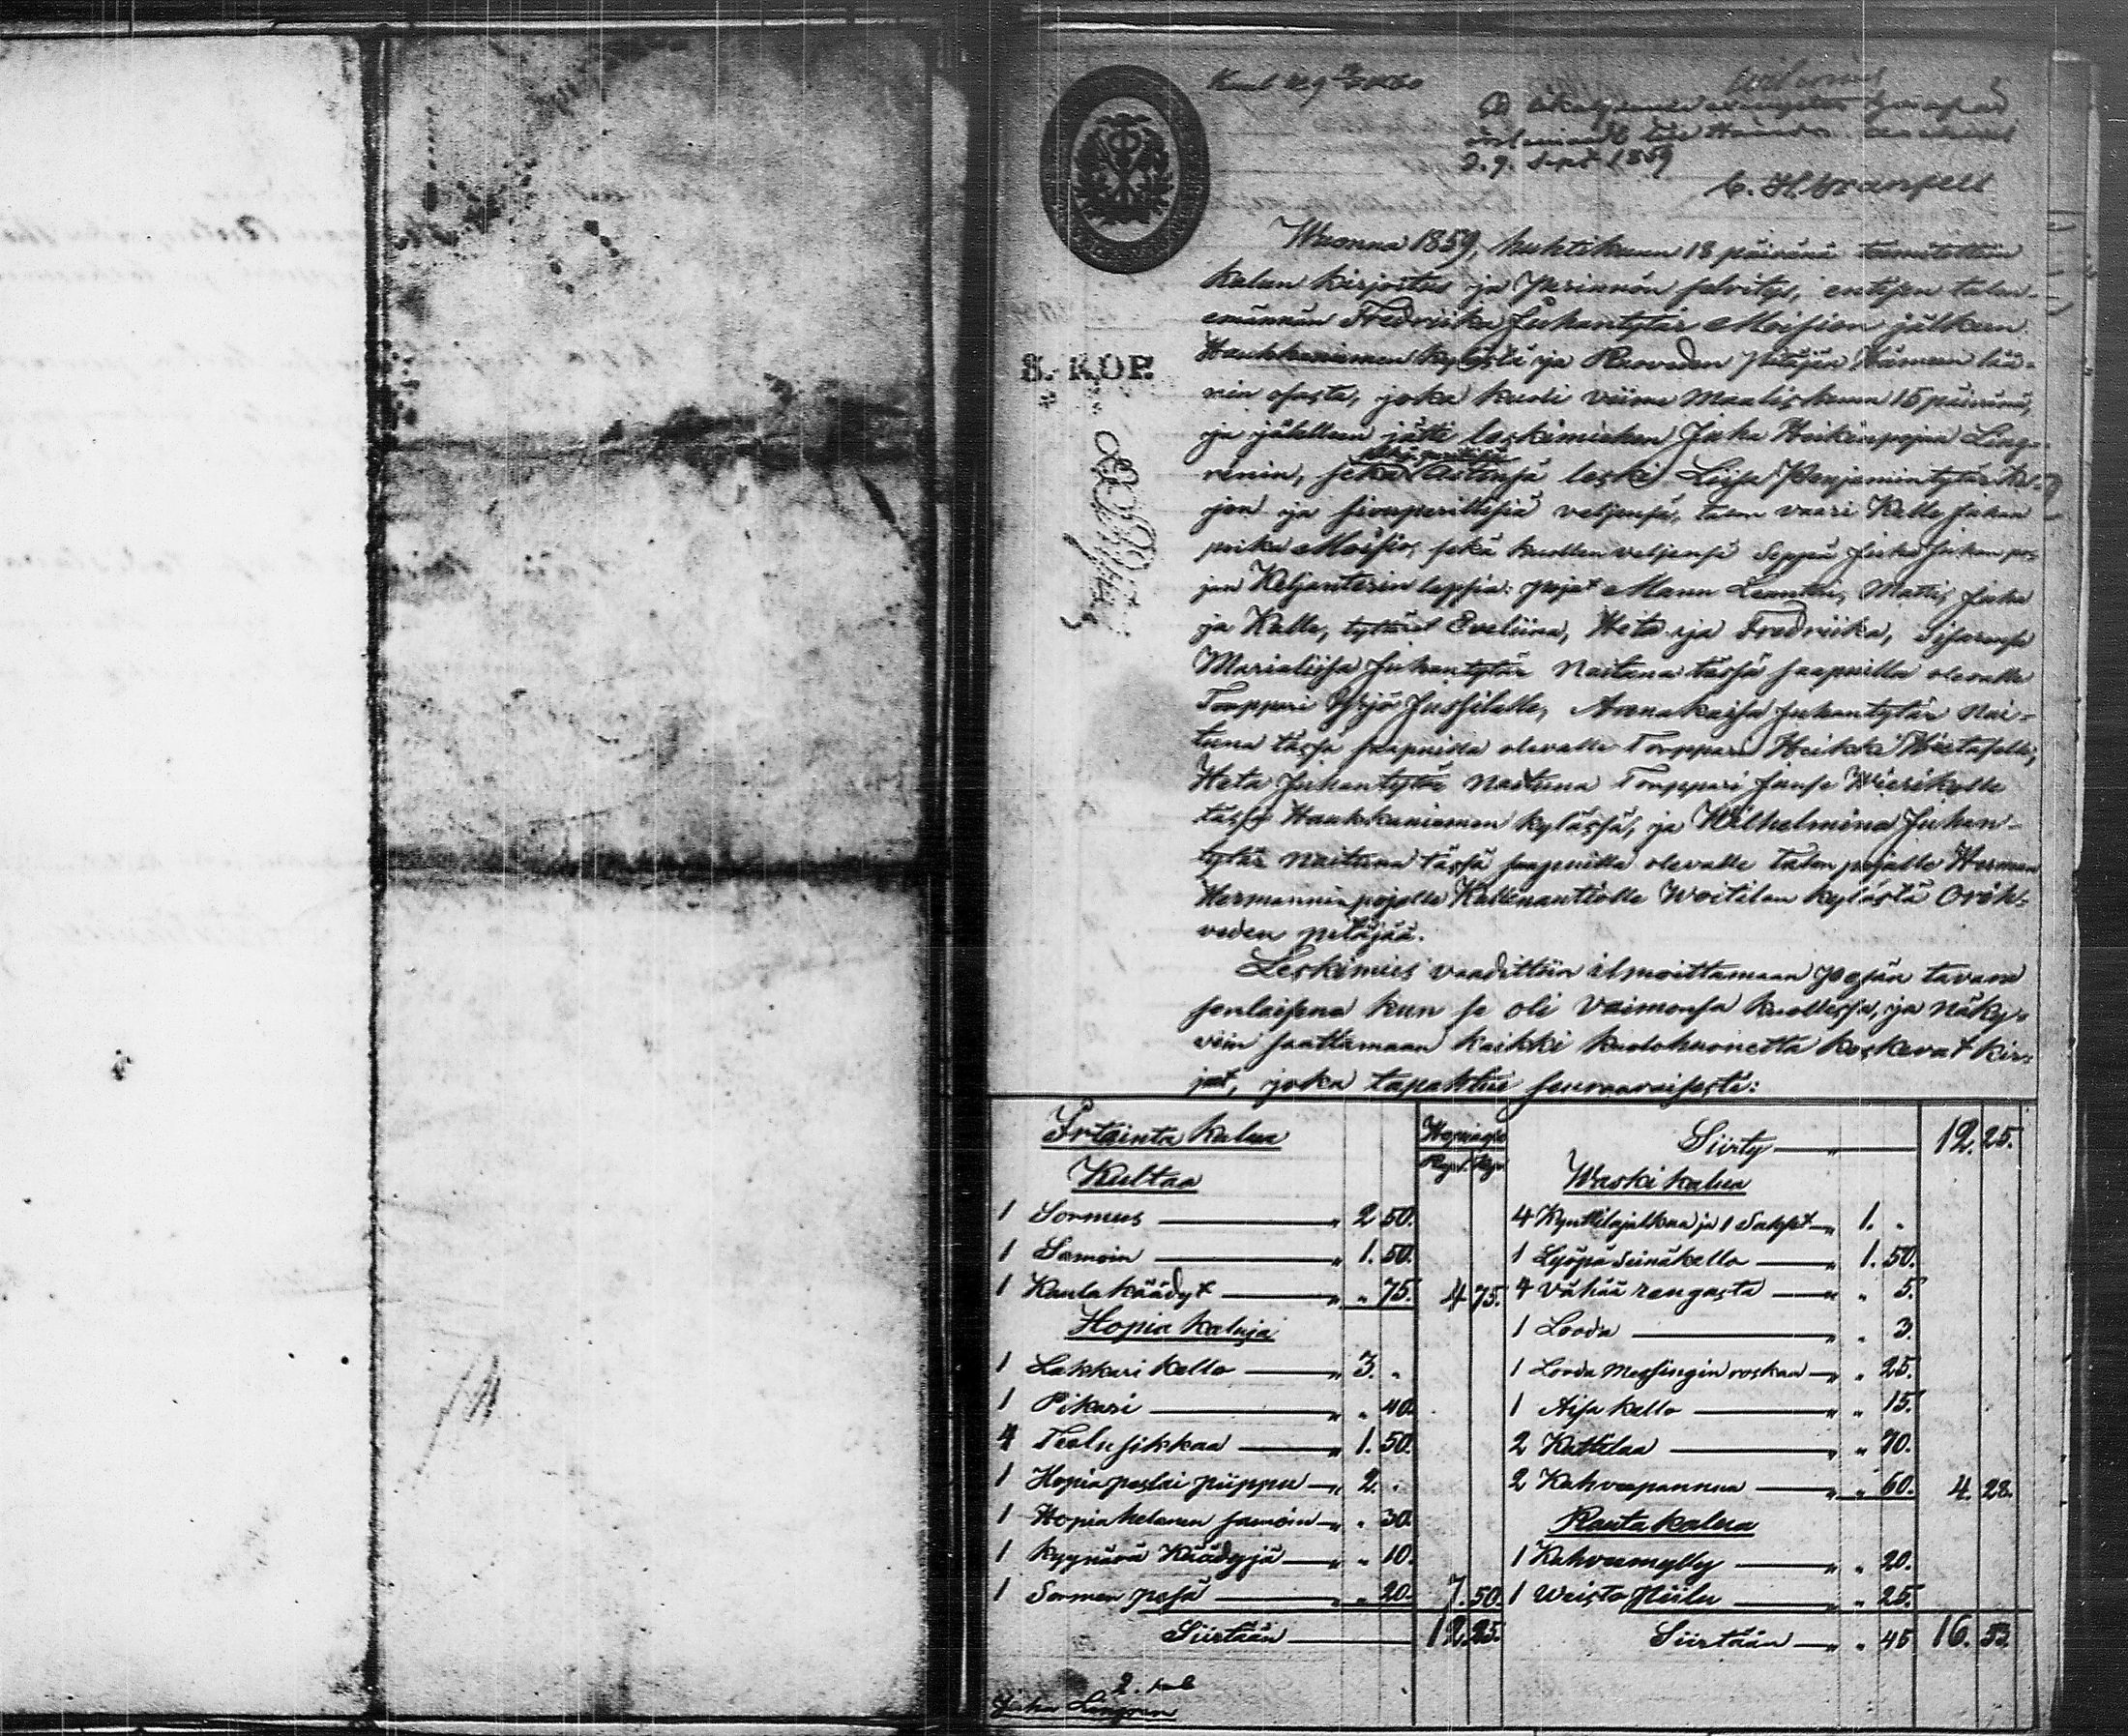 2.9. Sept 1859
Wuonna 1859, huhtikuun 18 päivänä toimitettiin
kalun kirjoitus ja Perinnön selvitys, entisen talon-
emännän Fredriika Juhantytär Moision jälkeen
Haukkaniemen kylästä ja Ruoveden pitäjän Hämeen lää-
8. KOP.
nin osasta, joka kuoli viime Maaliskuun 15 päivänä,
ja jälelleen jätti leskimiehen Juha Heikinpojan Ling-
renin, sekä Äitinsä leski Liisa Benjamintytär Kel-
jon ja sivuperillisiä veljensä, talon vaari Kalle Juhan
poika Moisio, sekä kuolleen veljensä Seppä Juha Juhan po-
jan Keljanterin lapsia: pojat Manu Leanteri, Matti, Juha
ja Kalle, tyttäret Eveliina, Heta ja Fredriika, Sisarensa
Marialiisa Juhantytär Naitana tässä saapuilla olevalle
Torppari Yrjö Jussilalle, Annakaisa Juhantytär Nai-
tuna tässä saapuilla olevalle Torppari Heikki
Heta Juhantytär Naituna Torppari
tässä Haukkaniemen kylässä, ja Wilhelmina Juhan-
tytär Naituna tässä saapuilla olevalle talon pojalle Herman
Hermanninpojalle Kallenautiolle Woitilan kylästä Orih-
veden pitäjää.
Leskimies vaadittiin ilmoittamaan pesän tavara
senlaisena kun se oli vaimonsa kuollessa, ja näky-
viin saattamaan kaikki kuolohuonetta koskevat kir-
jat, joka tapahtui seuraavaisesti:
Irtainta kalua Hopiassa Siirty — " 12. 25.
Kultaa Rupl. Kop. Waski kalua
1 Sormus — " 2 50. 4 Kynttilajalkaa ja 1 Sakset — " 1. "
1 Samoin — " 1. 50. 1 Lyöpä Seinäkello — " 1. 50.
1 Kaulakäädyt — " " 75. 4 75. 4 Vähää rengasta — " " 5.
Hopia kaluja 1 Looda — " " 3.
1 Lakkari kello — " 3. " 1 Looda Messingin roskaa — " " 25.
1 Pikari — " " 40. 1 Aisa kello — " " 15.
4 Teelusikkaa — " 1. 50. 2 Kattilaa — " " 70.
1 Hopia peslai piippu — " 2. " 2 Kahveepannua — " " 60. 4. 28.
1 Hopia helanen samoin — " " 30. Rauta kalua
1 Kyynärä Käädyjä — " " 10. 1 Kahveemylly — " " 20.
1 Sormen pesä — " " 20. 7. 50. 1 Weisto Hiilu — " " 25.
Siirtään — 12. 25. Siirtään — " " 45 16. 53.
Juha Lingren